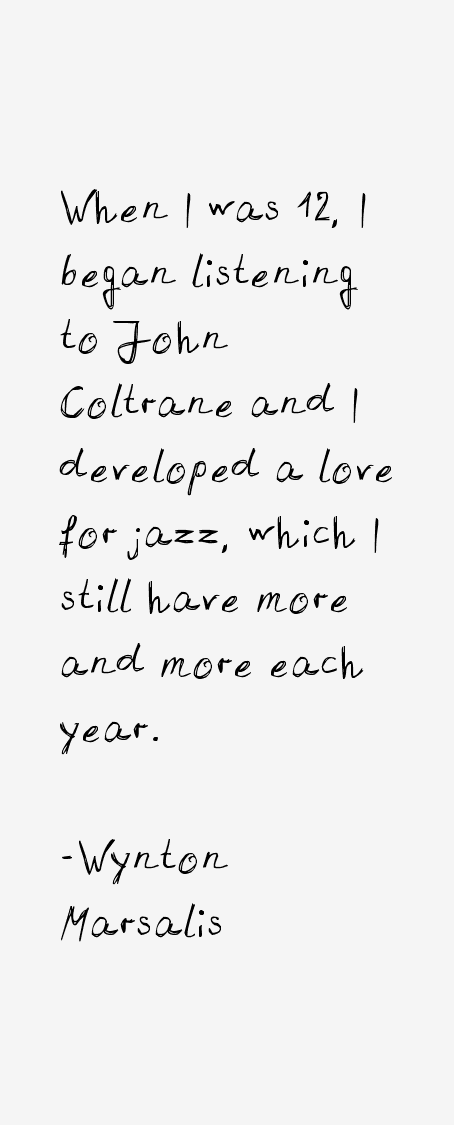 When I was 12, I
began listening
to John
Coltrane and I
developed a love
for jazz, which I
still have more
and more each
year.
-Wynton
Marsalis